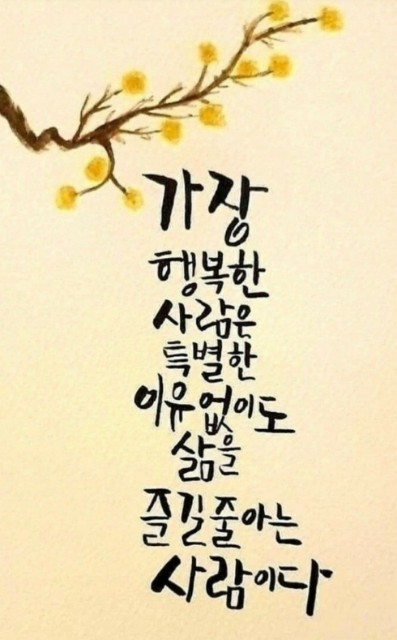 가장
행복한
사람은
특별한
이유없이도
삶을
즐길줄아는
사람이다